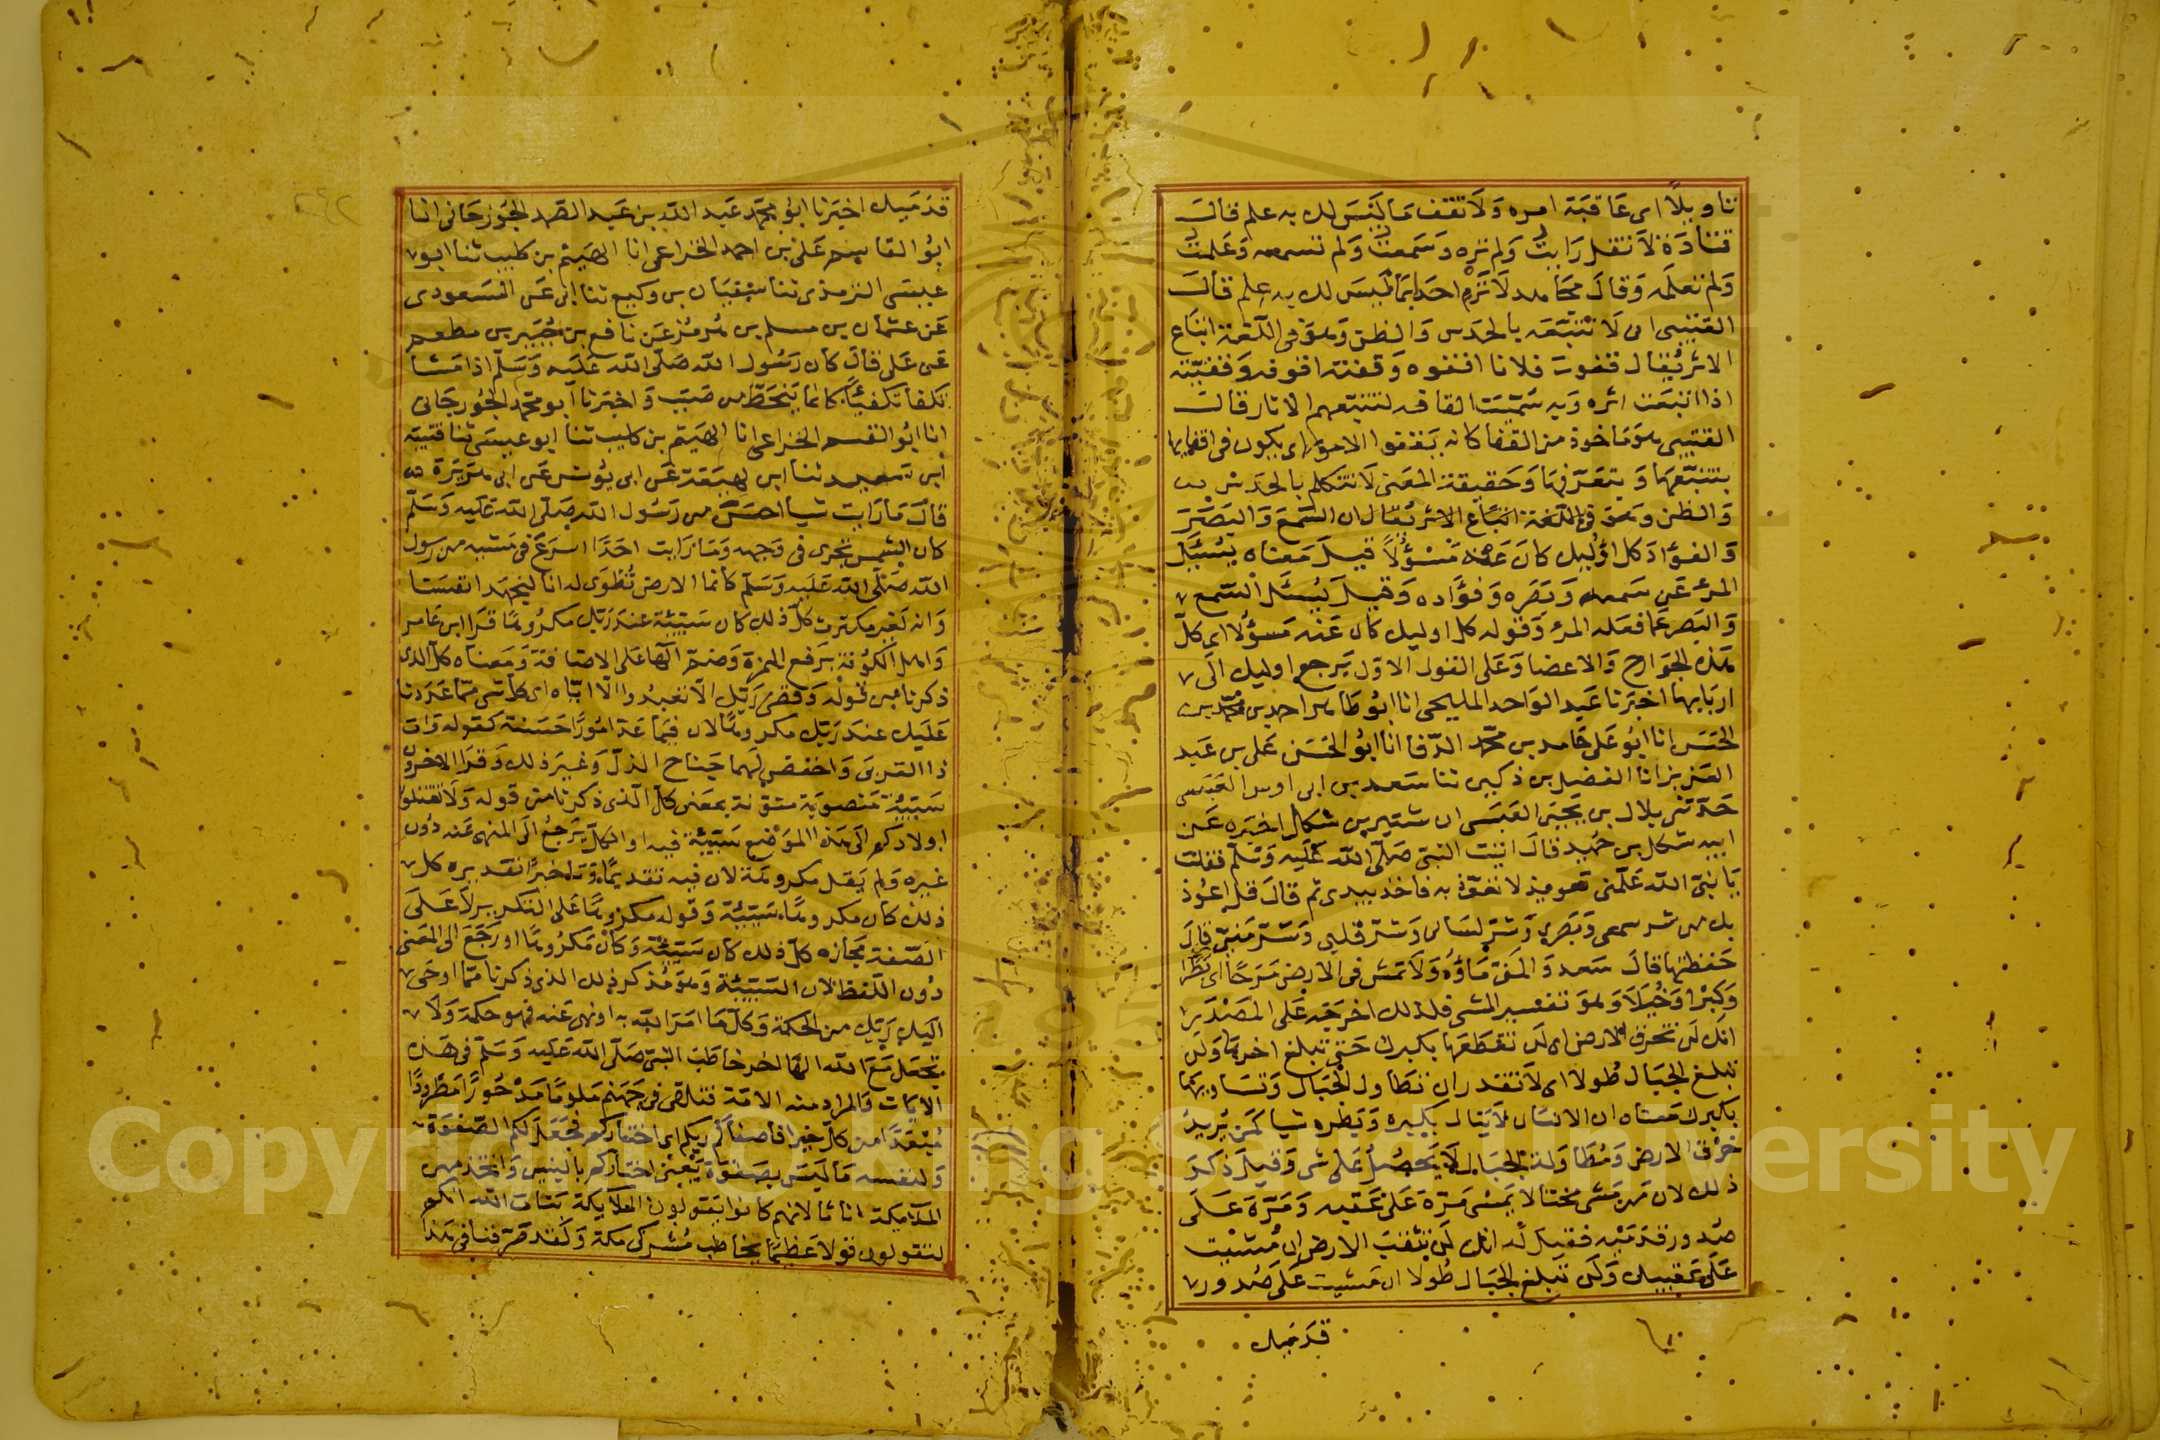 تاويلا اى عاقبة امره ولا تقف ما ليس لك به علم قال
قتادة لا تقل رايت ولم تره وسمعت ولم تسمعه وعلمت
ولم تعلمه وقال مجاهد لا ترم احدا بما ليس لك به علم قال
القتيبى اى لا تتبعه بالحدس والظن وهو فى اللغة اتباع
الاثر يقال قفوت فلانا اقفوه وقفته اقوفه وقفيته
اذا اتبعت اثره وبه سميت القافه لتتبعهم الاثار قال
القتيبى هو ماخوذ من القفا كانه يقفوا الامور اى يكون فى اقفايها
يتتبعها ويتعرفها وحقيقة المعنى لا تتكلم بالحدس
والظن وهو فى اللغة اتباع الاثر يقال ان السمع والبصر
والفؤاد كل اوليك كان عنه مسؤلا قيل معناه يسئل
المرء عن سمعه وبصره وفؤاده وقيل يسئل السمع
والبصر عما فعله المرء وقوله كل اوليك كان عنه مسؤلا اى كل
هذه الجوارح والاعضا وعلى القول الاول يرجع اوليك الى
اربابها اخبرنا عبد الواحد المليحى انا ابو طاهر احمد بن محمد بن
الحسن انا ابو على حامد بن محمد الرفا انا ابو الحسن على بن عبد
العزيز انا الفضل بن ذكين ثنا سعد بن ابى اوس العبسى
حدثنى بلال بن يحيى العبسى ان شتير بن شكل اخبره عن
ابيه شكل بن حميد قال اتيت النبى صلى الله عليه وسلم فقلت
يا نبى الله علمنى تعويذ لا تعوذ به فاخذ بيدى ثم قال قل اعوذ
بك من شر سمعى وبصرى وشر لسانى وشر قلبى وشر منيى قال
حفظتها قال سعد والمنى ماؤه ولا تمش فى الارض مرحا اى بطرا
وكبرا وخيلا وهو تفسير المشى فلذلك اخرجه على المصدر
انك لن تخرق الارض اى لن تقطعها بكبرك حتى تبلغ اخرها ولن
تبلغ الجبال طولا اى لا تقدر ان تطاول الجبال وتساويها
بكبرك معناه ان الانسان لا ينال بكبره وبطره شيا كمن يريد
خرق الارض ومطاولة الجبال لا يحصل على شى وقيل ذكر
ذلك لان من مشى مختالا يمشى مرة على عقبيه ومرة على
صدور قدميه فقيل له انك لن تثقب الارض ان مشيت
على عقبيك ولن تبلغ الجبال طولا ان مشيت على صدور
قدميك
قدميك اخبرنا ابو محمد عبد الله بن عبد الصمد الجوزجانى انا
ابو القاسم على بن احمد الخزاعى انا الهيثم بن كليب ثنا ابو
عيسى الترمذى ثنا سفيان بن وكيع ثنا ابى عن المسعودى
عن عثمان بن مسلم بن هرمز عن نافع بن جبير بن مطعم
عن على قال كان رسول الله صلى الله عليه وسلم اذا مشا
تكفا تكفيئا كانما ينحط من صبب واخبرنا ابو محمد الجورجانى
انا ابو القسم الخزاعى انا الهيثم بن كليب ثنا ابو عيسى ثنا قتيبة
ابن سعيد ثنا ابن لهيعة عن ابى يونس عن ابى هريرة
قال ما رايت شيا احسن من رسول الله صلى الله عليه وسلم
كان الشمس تجرى فى وجهه وما رايت احدا اسرع فى مشيه من رسول
الله صلى الله عليه وسلم كانما الارض تطوى له انا لنجهد انفسنا
وانه لغير مكترث كل ذلك كان سيئة عند ربك مكروها قرا ابن عامر
واهل الكوفة برفع الهمزة وضم الها على الاضافة ومعناه كل الذى
ذكرنا من قوله وقضى ربك الا تعبدوا الا اياه اى كل شى مما عددنا
عليك عند ربك مكروها لان فيما عد امورا حسنة كقوله وات
ذا القربى واخفض لهما جناح الذل وغير ذلك وقرا الاخرون
سيئة منصوبة منونة بمعنى كل الذى ذكرنا من قوله ولا تقتلوا
اولادكم الى هذا الموضع سيئة فيه اذ الكل يرجع الى المنهى عنه دون
غيره ولم يقل مكروهة لان فيه تقديما وتاخيرا تقديره كل
ذلك كان مكروها سيئة وقوله مكروها على التكرير لا على
الصفة مجازه كل ذلك كان سيئة وكان مكروها او رجع الى المعنى
دون اللفظ لان السيئة وهو مذكر ذلك الذى ذكرنا مما اوحى
اليك ربك من الحكمة وكلما امر الله به او نهى عنه فهو حكمة ولا
تجعل مع الله الها اخر خاطب النبى صلى الله عليه وسلم فى هذه
الايات والمراد منه الامة فتلقى فى جهنم ملوما مدحورا مطرودا
مبعدا من كل خير افاصفاكم ربكم اى اختاركم فجعل لكم الصفوة
ولنفسه ما ليس بصفوة يعنى اختاركم بالبنين واتخذ من
الملايكة اناثا لانهم كانوا يقولون الملايكة بنات الله انكم
لتقولون قولا عظيما يخاطب مشركى مكة ولقد صرفنا فى هذا
Copyright © King Saud University